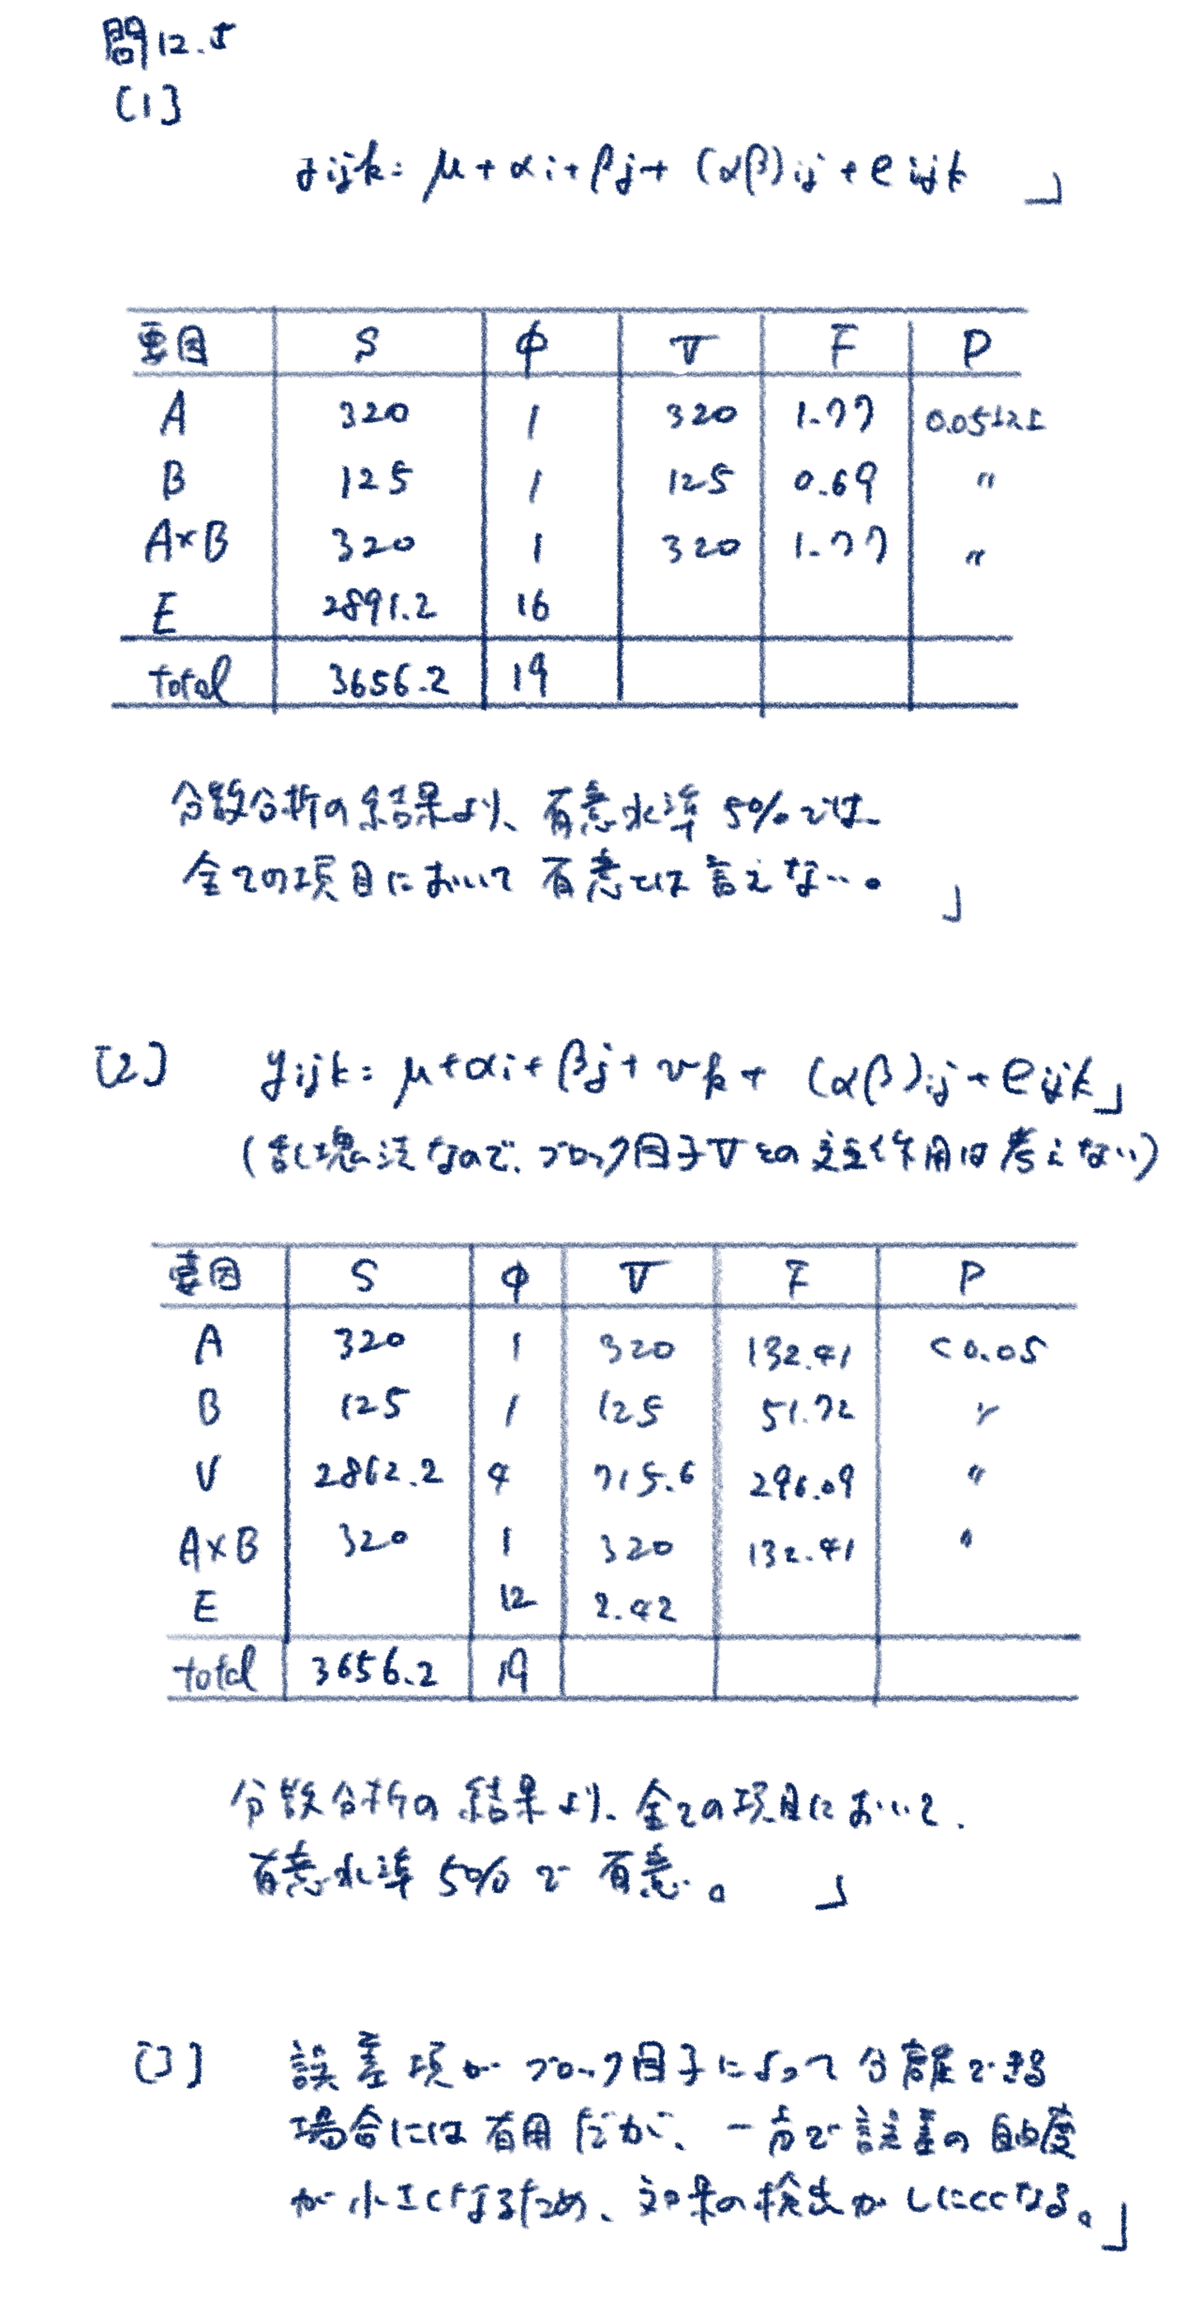 問12.5
[1]
yijk = μ + αi + βj + (αβ)ij + eijk 」
要因 S φ V F P
A 320 1 320 1.77 0.05以上
B 125 1 125 0.69 〃
A×B 320 1 320 1.77 〃
E 2891.2 16
total 3656.2 19
分散分析の結果より、有意水準 5%では、
全ての項目において 有意とは言えない。 」
[2] yijk = μ + αi + βj + vk + (αβ)ij + eijk 」
(乱塊法なので、ブロック因子Vとの交互作用は考えない)
要因 S φ V F P
A 320 1 320 132.41 <0.05
B 125 1 125 51.72 〃
V 2862.2 4 715.6 296.09 〃
A×B 320 1 320 132.41 〃
E 12 2.42
total 3656.2 19
分散分析の結果より、全ての項目において、
有意水準 5% で 有意。 」
[3] 誤差項が ブロック因子によって 分離できる
場合には有用だが、一方で誤差の自由度
が小さくなるため、効果の検出がしにくくなる。」